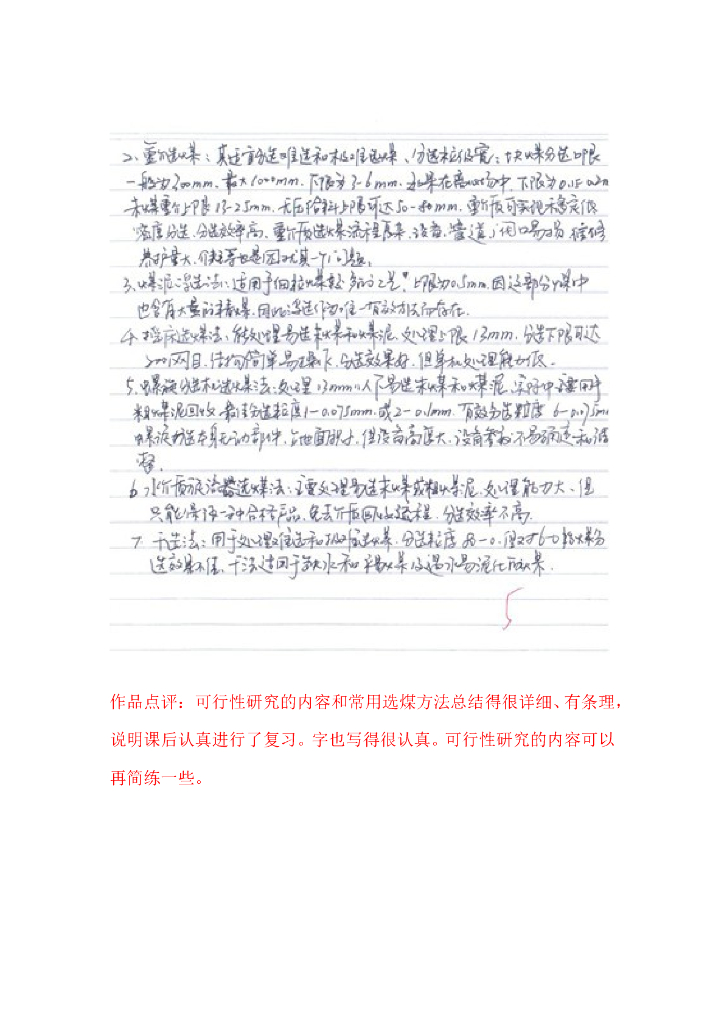 2、重介选煤：其适宜分选难选和极难选煤、分选粒级宽：块煤分选上限
一般为300mm、最大1000mm、下限为3-6mm、末煤在离心力场中，下限为0.15-0.2m
末煤重介上限13-25mm、无压给料上限可达50-80mm、重介质可实现稳定低
密度分选、分选效率高、重介质选煤流程复杂、设备、管道、闸门易磨损 维修
养护量大、介耗等也是困扰其一个问题。
3、煤泥浮选法：适用于细粒煤 上限为0.5mm、因这部分煤中
也含有大量的精煤、因此浮选作为唯一有效方法而存在.
4、摇床选煤法、能处理易选末煤和煤泥、处理上限13mm、分选下限可达
200网目、结构简单易操作、分选效果好、但单机处理能力低.
5、螺旋分选机选煤法：处理13mm以下易选末煤和煤泥、实际中主要用于
粗煤泥回收 最佳分选粒度1-0.075mm、或2-0.1mm、有效分选粒度 6-0.075m
螺旋分选本身无动部件、占地面积小、但设备高度大、设备参数不易调
6、水介质旋流器选煤法：主要处理易选末煤或粗煤泥、处理能力大、但
只能得一种合格产品、免去介质回收流程、分选效率不高.
7、干选法：用于处理难选和极难选煤、分选粒度 80-0、但对6-0粉煤分
选效果不佳、干法适用于缺水和 及遇水易泥化的煤.
5
作品点评：可行性研究的内容和常用选煤方法总结得很详细、有条理，
说明课后认真进行了复习。字也写得很认真。可行性研究的内容可以
再简练一些。